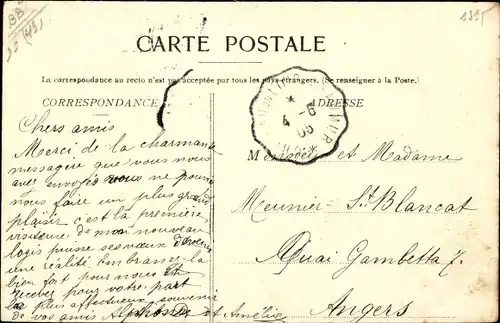 BB
CARTE POSTALE
La correspondance au recto n'est pas acceptée par tous les pays étrangers. (Se renseigner à la Poste.)
CORRESPONDANCE
ADRESSE
4 -6
06
Chers amis
Merci de la charmante
messagère que vous nous
avez envoyés vous ne pouviez
nous faire un plus grand
plaisir c'est la première
visiteuse de mon nouveau
logis puisse ses vœux devenir
une réalité
bien fait pour nous Et
recevez pour votre part
les plus affectueux souvenir
de vos amis Alphonse et Amélie
Monsieur et Madame
Meunier-St Blancat
Quai Gambetta 7.
Angers